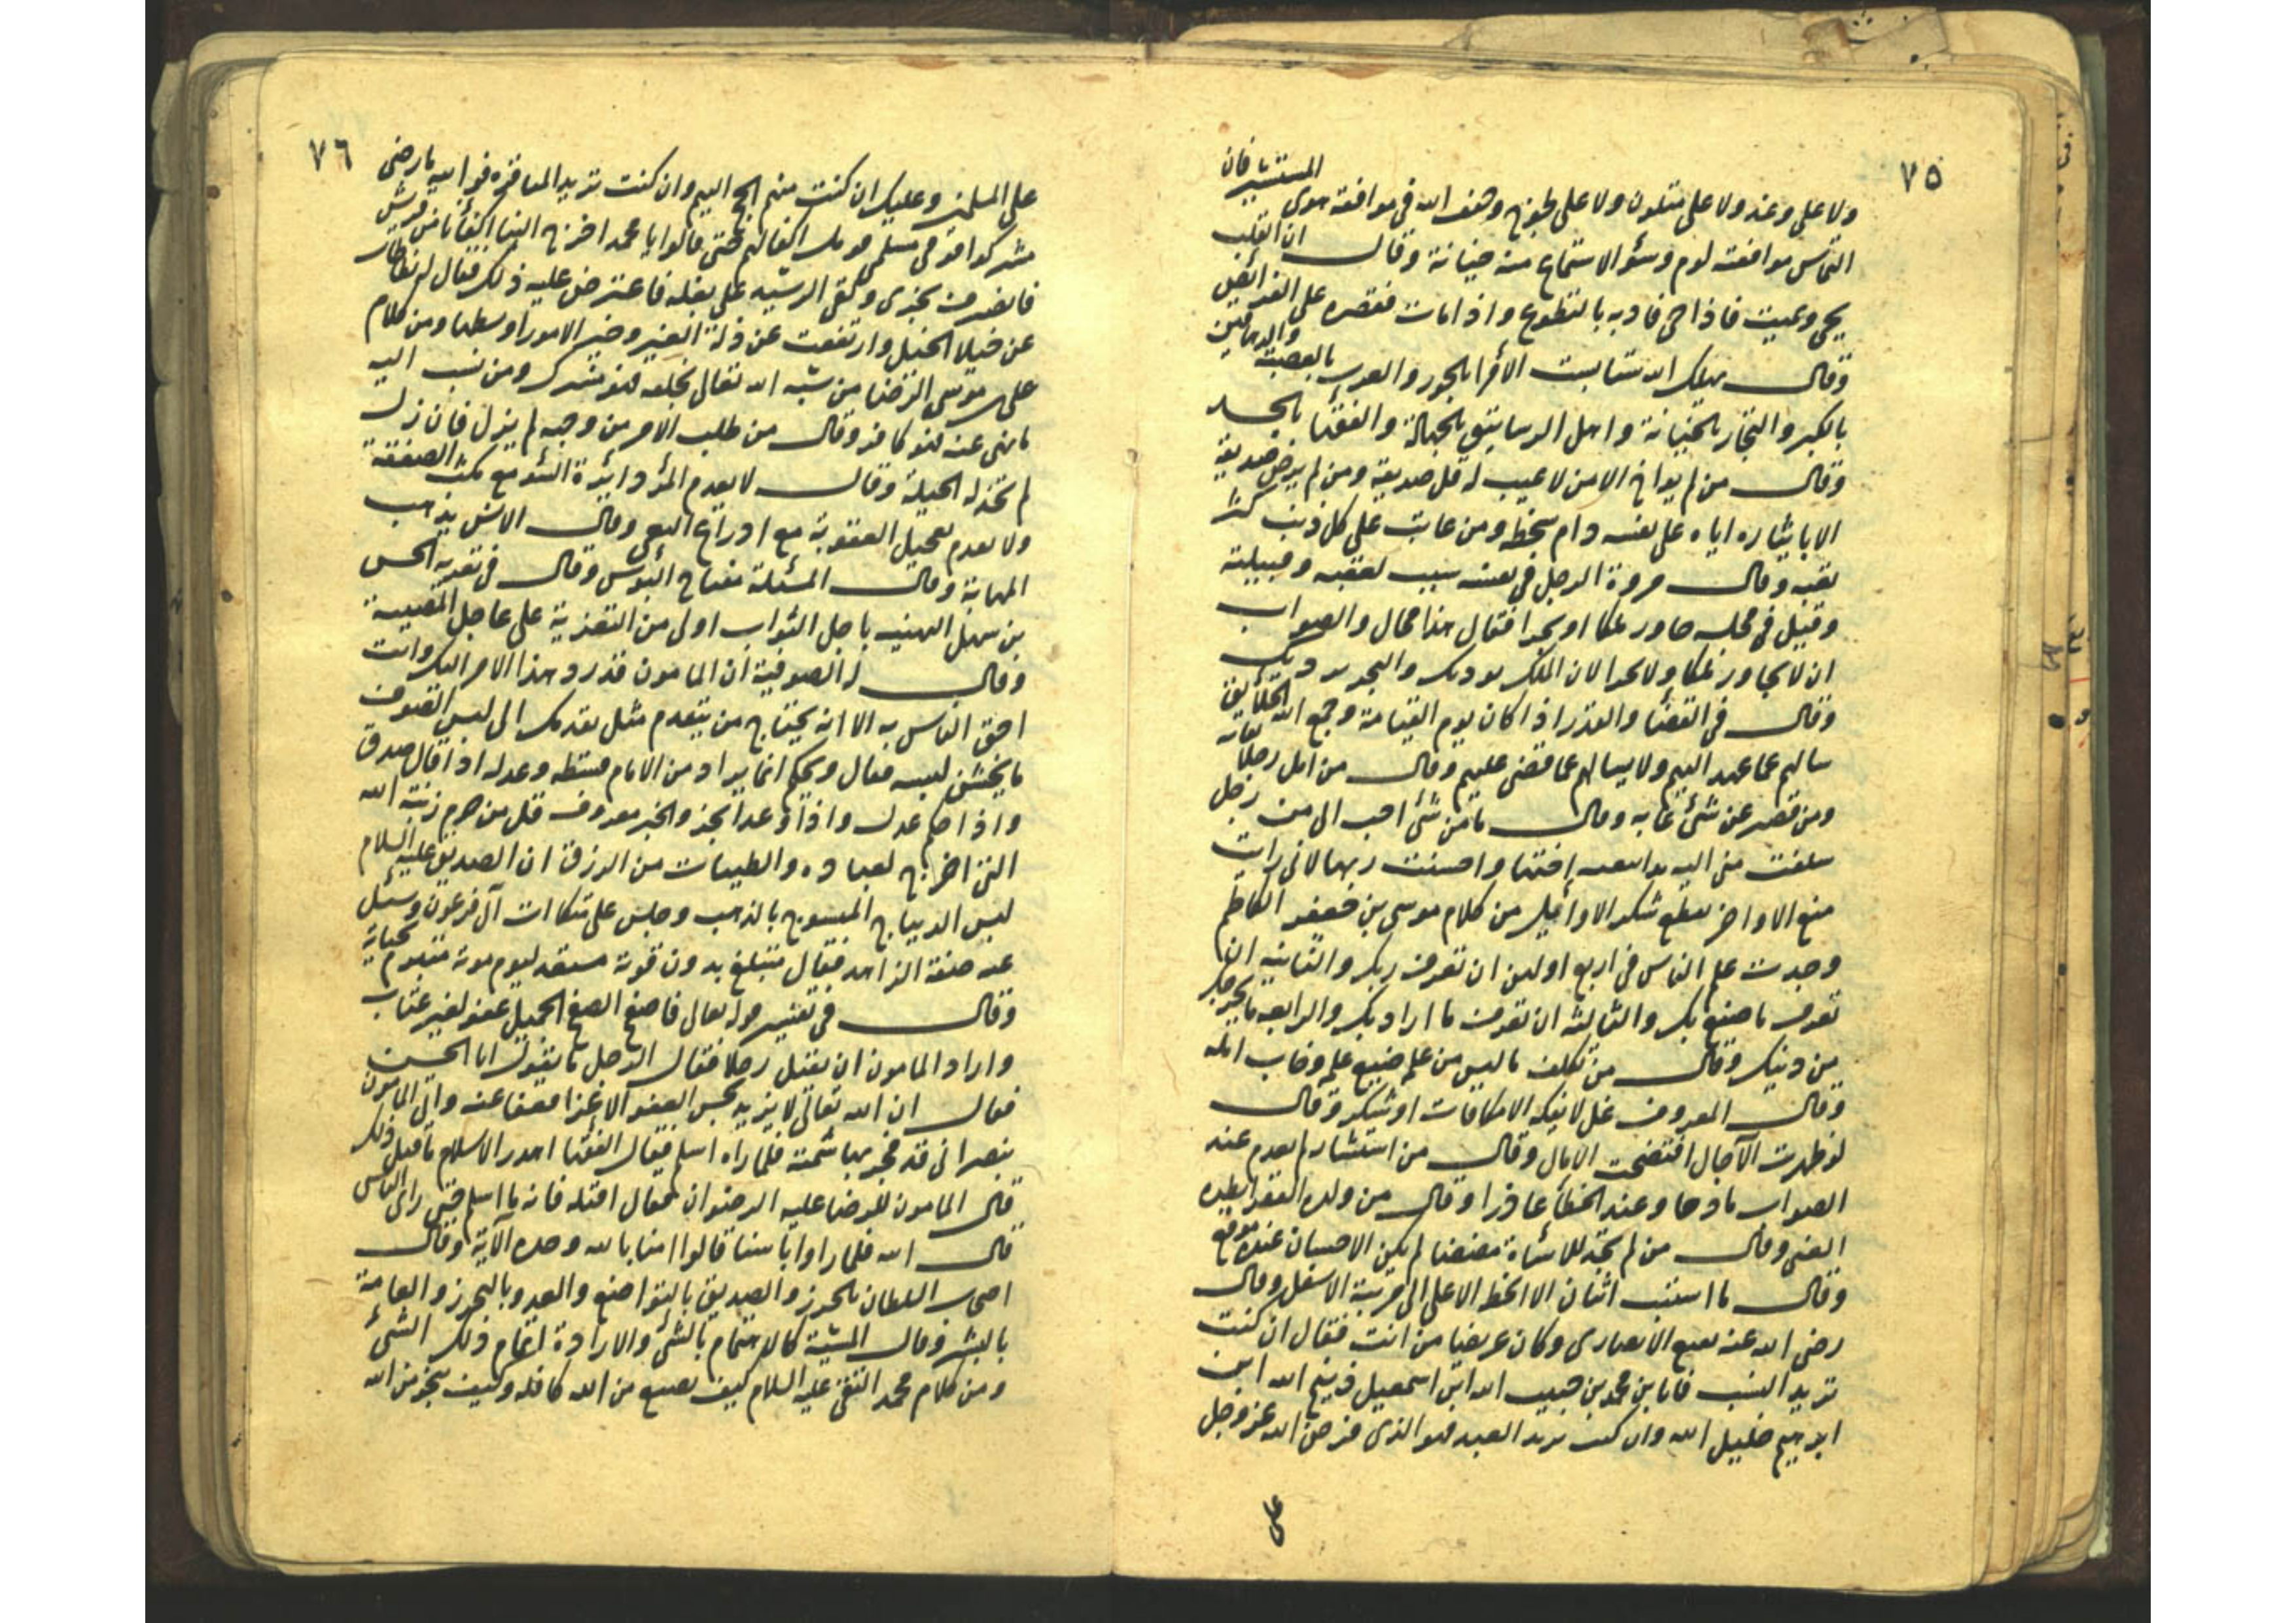 ٧٥
ولا على وغد ولا على متلون ولا على لجوج وخف الله في موافقة هوى المستشير فان
التماس موافقته لوم وسؤ الاستماع منه خيانة وقال ان القلب
يحيى ويميت فاذا حى فادبه بالتطوع واذا مات فقصره على الفرائض
وقال يهلك الله ستا بست الأمرا بالجور والعرب بالعصبية والدهاقين
بالكبر والتجار بالخيانة واهل الرساتيق بالجهالة والفقها بالحسد
وقال من لم يواخ الا من لا عيب له قل صديقه ومن لم يرض صديقه
الا بايثاره اياه على نفسه دام سخطه ومن عاتب على كل ذنب كثر
تعبه وقال مروة الرجل في نفسه نسب لعقبه وقبيلته
وقيل في مجلسه جاور ملكا او بحرا فقال هذا محال والصواب
ان لا تجاور ملكا ولا بحرا لان الملك يوديك والبحر يرديك
وقال في القضا والقدر اذا كان يوم القيامة وجمع الله الخلايق
سالهم عما عهد اليهم ولا يسالهم عما قضى عليهم وقال من امل رجلا هابه
ومن قصر عن شئ عابه وقال ما من شئ احب الى من رجل
سلفت منى اليه يد اتبعتها اختها واحسنت ربها لانى رايت
منع الاواخر يقطع شكر الاوائل من كلام موسى بن جعفر الكاظم
وجدت علم الناس في اربع اولهن ان تعرف ربك والثانية ان
تعرف ما صنع بك والثالثة ان تعرف ما اراد بك والرابعة ما يخرجك
من دينك وقال من تكلف ما ليس من علمه ضيع علمه وخاب امله
وقال المعروف غل لا يفكه الا مكافات او شكر وقال
لو ظهرت الآجال افتضحت الامال وقال من استشار لم يعدم عند
الصواب مادحا وعند الخطأ عاذرا وقال من ولده الفقر ابطره
الغنى وقال من لم يجد للاساة مضضا لم يكن الاحسان عنده موقع
وقال ما استب اثنان الا انحط الاعلى الى مرتبة الاسفل وقال
رضى الله عنه نفيع الانصارى وكان عريضا من انت فقال ان كنت
تريد النسب فانا بن محمد بن حبيب الله ابن اسمعيل ذبيح الله ابن
ابرهيم خليل الله وان كنت تريد البلد فهو الذى فرض الله عز وجل
على
٧٦
على المسلمين وعليك ان كنت منهم الحج اليهم وان كنت تريد المفاخرة فو الله ما رضى
مشركوا قومى مسلمى قومك اكفا لهم حتى قالوا يا محمد اخرج الينا اكفأنا من قريش
فانصرف بخزى ولقى الرشيد على بغله فاعترض عليه في ذلك فقال له تطاطات
عن خيلا الخيل وارتفعت عن ذلة العير وخير الامور اوسطها ومن كلام
على بن موسى الرضا من شبه الله تعالى بخلقه فهو مشرك ومن نسب اليه
ما نهى عنه فهو كافر وقال من طلب الامر من وجهه لم يزل فان زل
لم تخذله الحيلة وقال لا يعدم المرؤ دايرة السؤ مع نكث الصفقة
ولا يعدم تعجيل العقوبة مع ادراع البغى وقال الانس يذهب
المهابة وقال المسئلة مفتاح البوس وقال في تعزيه الحسن
بن سهل التهنيه باجل الثواب اولى من التعزية على عاجل المصيبة
وقال له الصوفية ان المامون قد رد هذا الامر اليك وانت
احق الناس به الا انه يحتاج من يتقدم مثل تقدمك الى لبس الصوف
ما يخشن لبسه فقال ويحكم انما يراد من الامام قسطه وعدله اذا قال صدق
واذا حكم عدل واذا وعد انجز والخير معروف قل من حرم زينة الله
التى اخرج لعباده والطيبات من الرزق ان الصديق عليه السلام
لبس الديباج المنسوج بالذهب وجلس على متكات آل فرعون وسئل
عن صفة الزاهد فقال متبلغ بدون قوته مستعد ليوم موته متبرم بحياته
وقال في تفسير قوله تعالى فاصفح الصفح الجميل عفو بغير عتاب
واراد المامون ان يقتل رجلا فقال الرجل ما يقول ابا الحسن
فقال ان الله تعالى لا يزيد بحسن العفو الا عزا فعفا عنه واتى المامون
بنصرانى قد فجر بهاشمية فلما راه اسلم فقال الفقها اهدر الاسلام ما قبل ذلك
قال المامون للرضا عليه الرضوان فقال اقتله فانه ما اسلم حتى راى الباس
قال الله فلما راوا باسنا قالوا امنا بالله وحده الآية وقال
اصحب السلطان بالحذر والصديق بالتواضع والعدو بالتحرز والعامة
بالبشر وقال المشية كالاهتمام بالشئ والارادة اتمام ذلك الشئ
ومن كلام محمد التقى عليه السلام كيف يضيع من الله كافله وكيف ينجو من الله